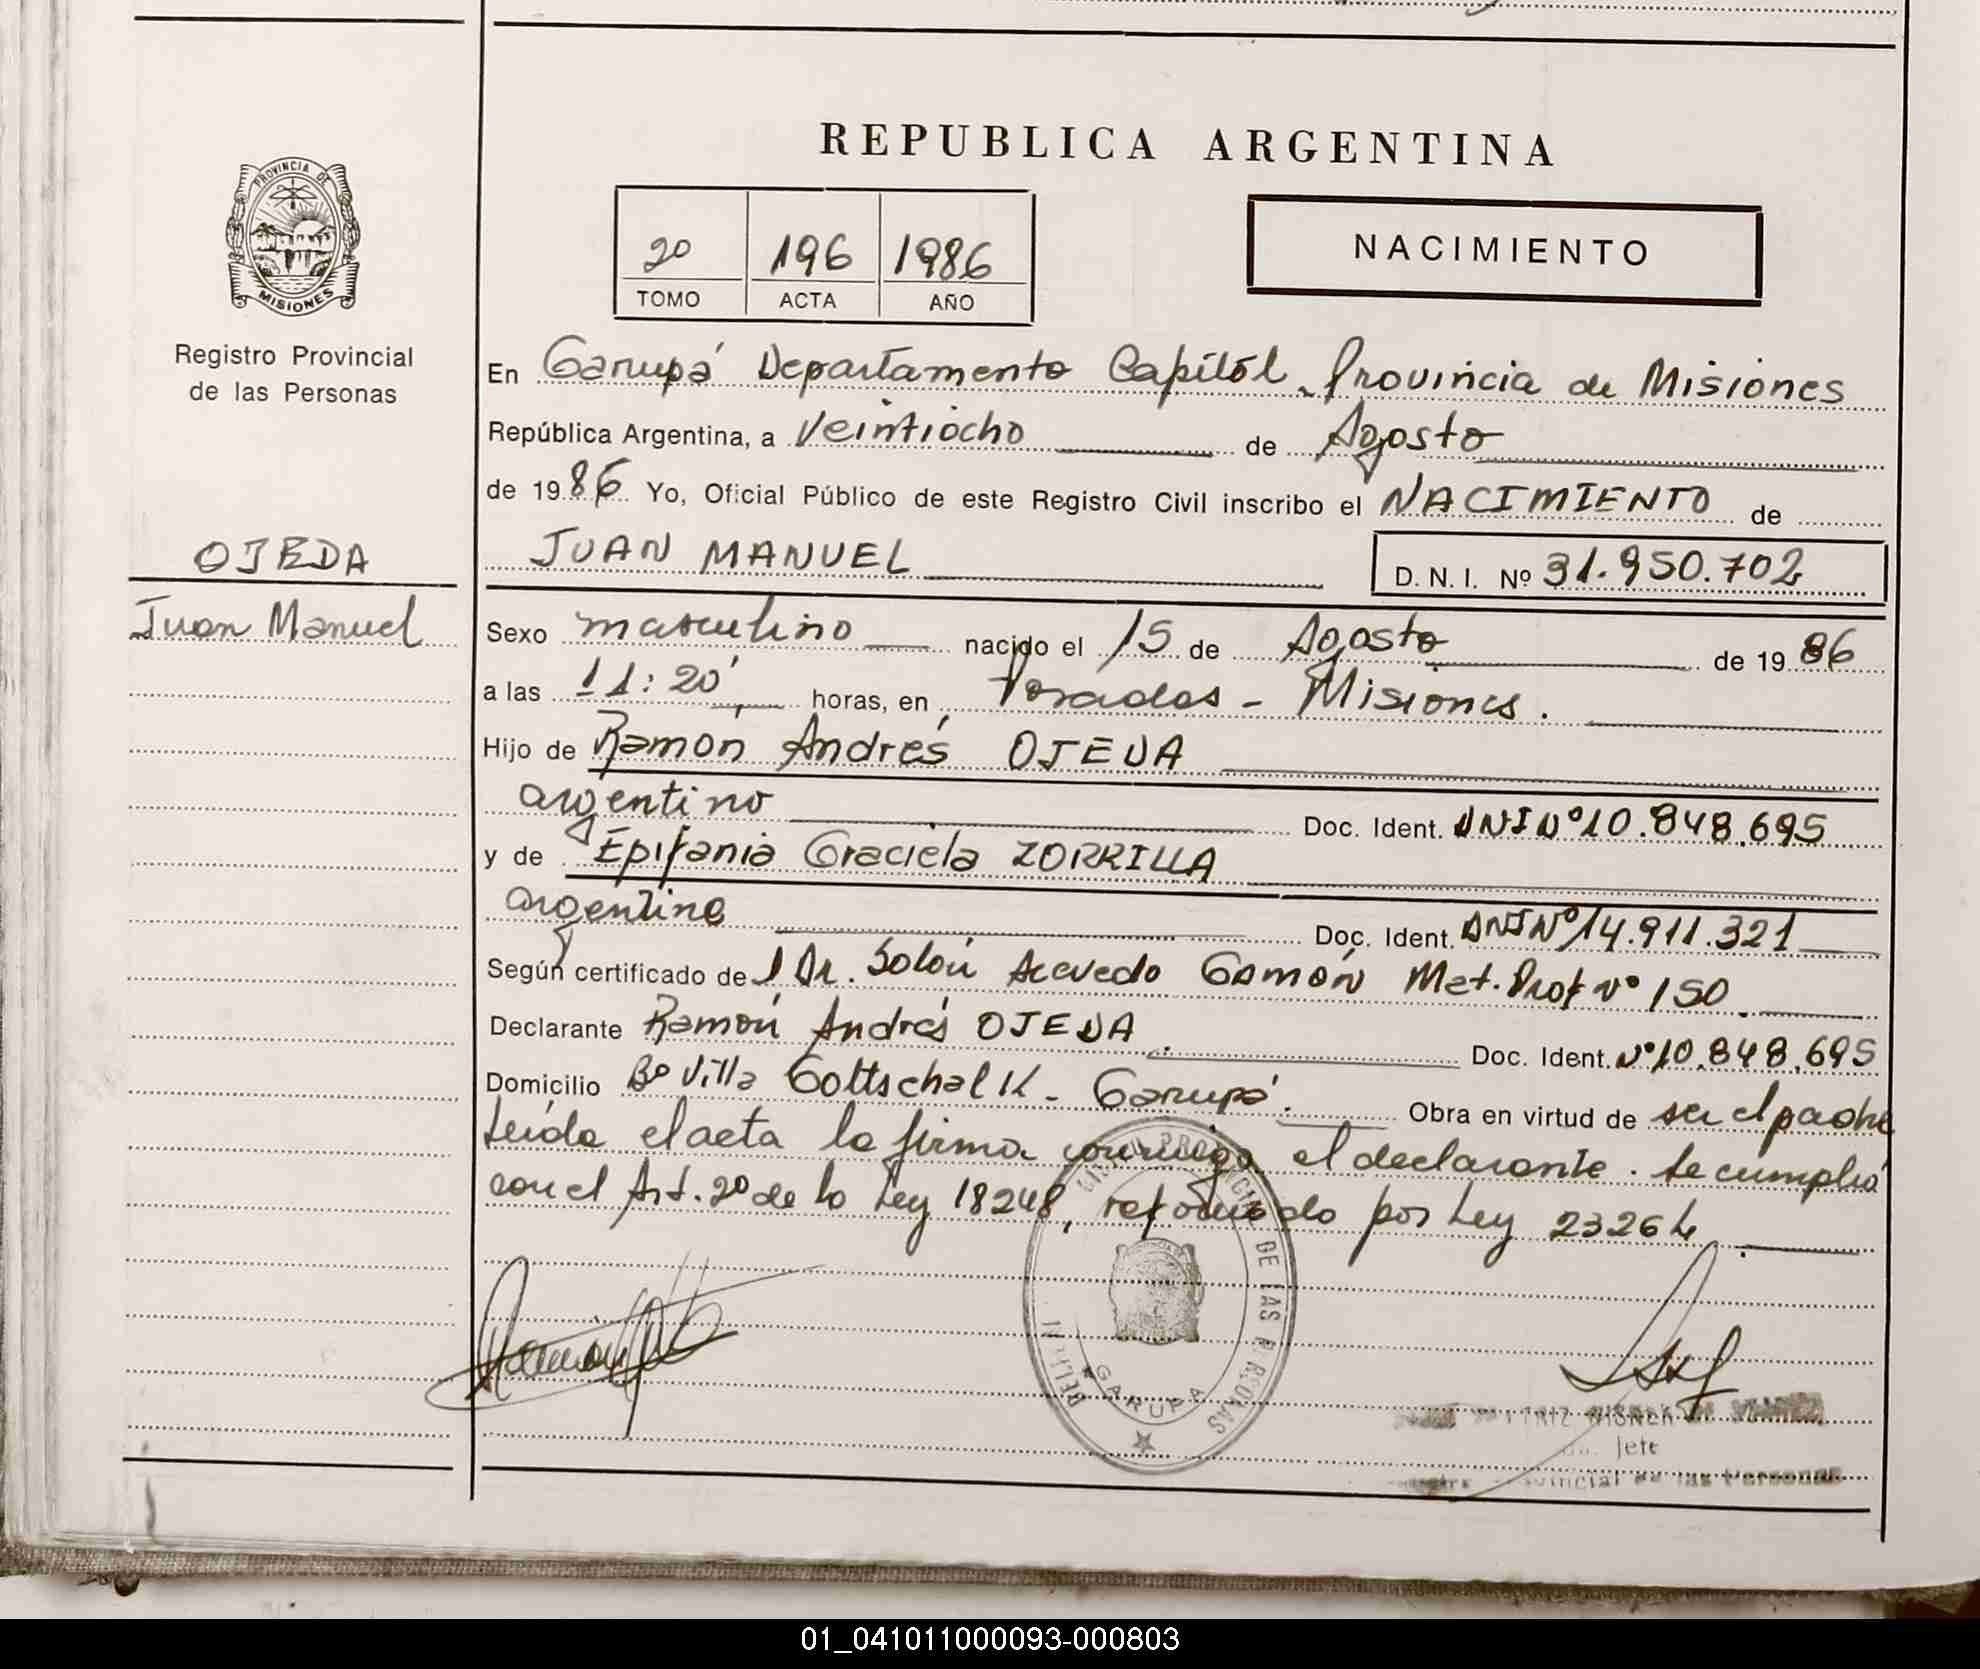 REPUBLICA ARGENTINA
PROVINCIA DE
MISIONES
Registro Provincial
de las Personas
20 196 1986
TOMO ACTA AÑO
NACIMIENTO
En Garupá Departamento Capital - Provincia de Misiones
República Argentina, a Veintiocho de Agosto
de 1986 Yo, Oficial Público de este Registro Civil inscribo el NACIMIENTO de
OJEDA
Juan Manuel
JUAN MANUEL
D. N. I. Nº 31.950.702
Sexo masculino nacido el 15 de Agosto de 1986
a las 11:20' horas, en Posadas - Misiones.
Hijo de Ramón Andrés OJEDA
argentino Doc. Ident. DNI Nº 10.848.695
y de Epifania Graciela ZORRILLA
argentina Doc. Ident. DNI Nº 14.911.321
Según certificado del Dr. Solón Acevedo Gamón Mat. Prof Nº 150
Declarante Ramón Andrés OJEDA. Doc. Ident. Nº 10.848.695
Domicilio Bº Villa Gottschalk - Garupá. Obra en virtud de ser el padre
Leída el acta la firma conmigo el declarante. Se cumplió
con el Art. 2º de la Ley 18248, reformado por Ley 23264
PROVINCIAL DE LAS PERSONAS
GARUPA
Jefe
Provincial de las Personas
01_041011000093-000803